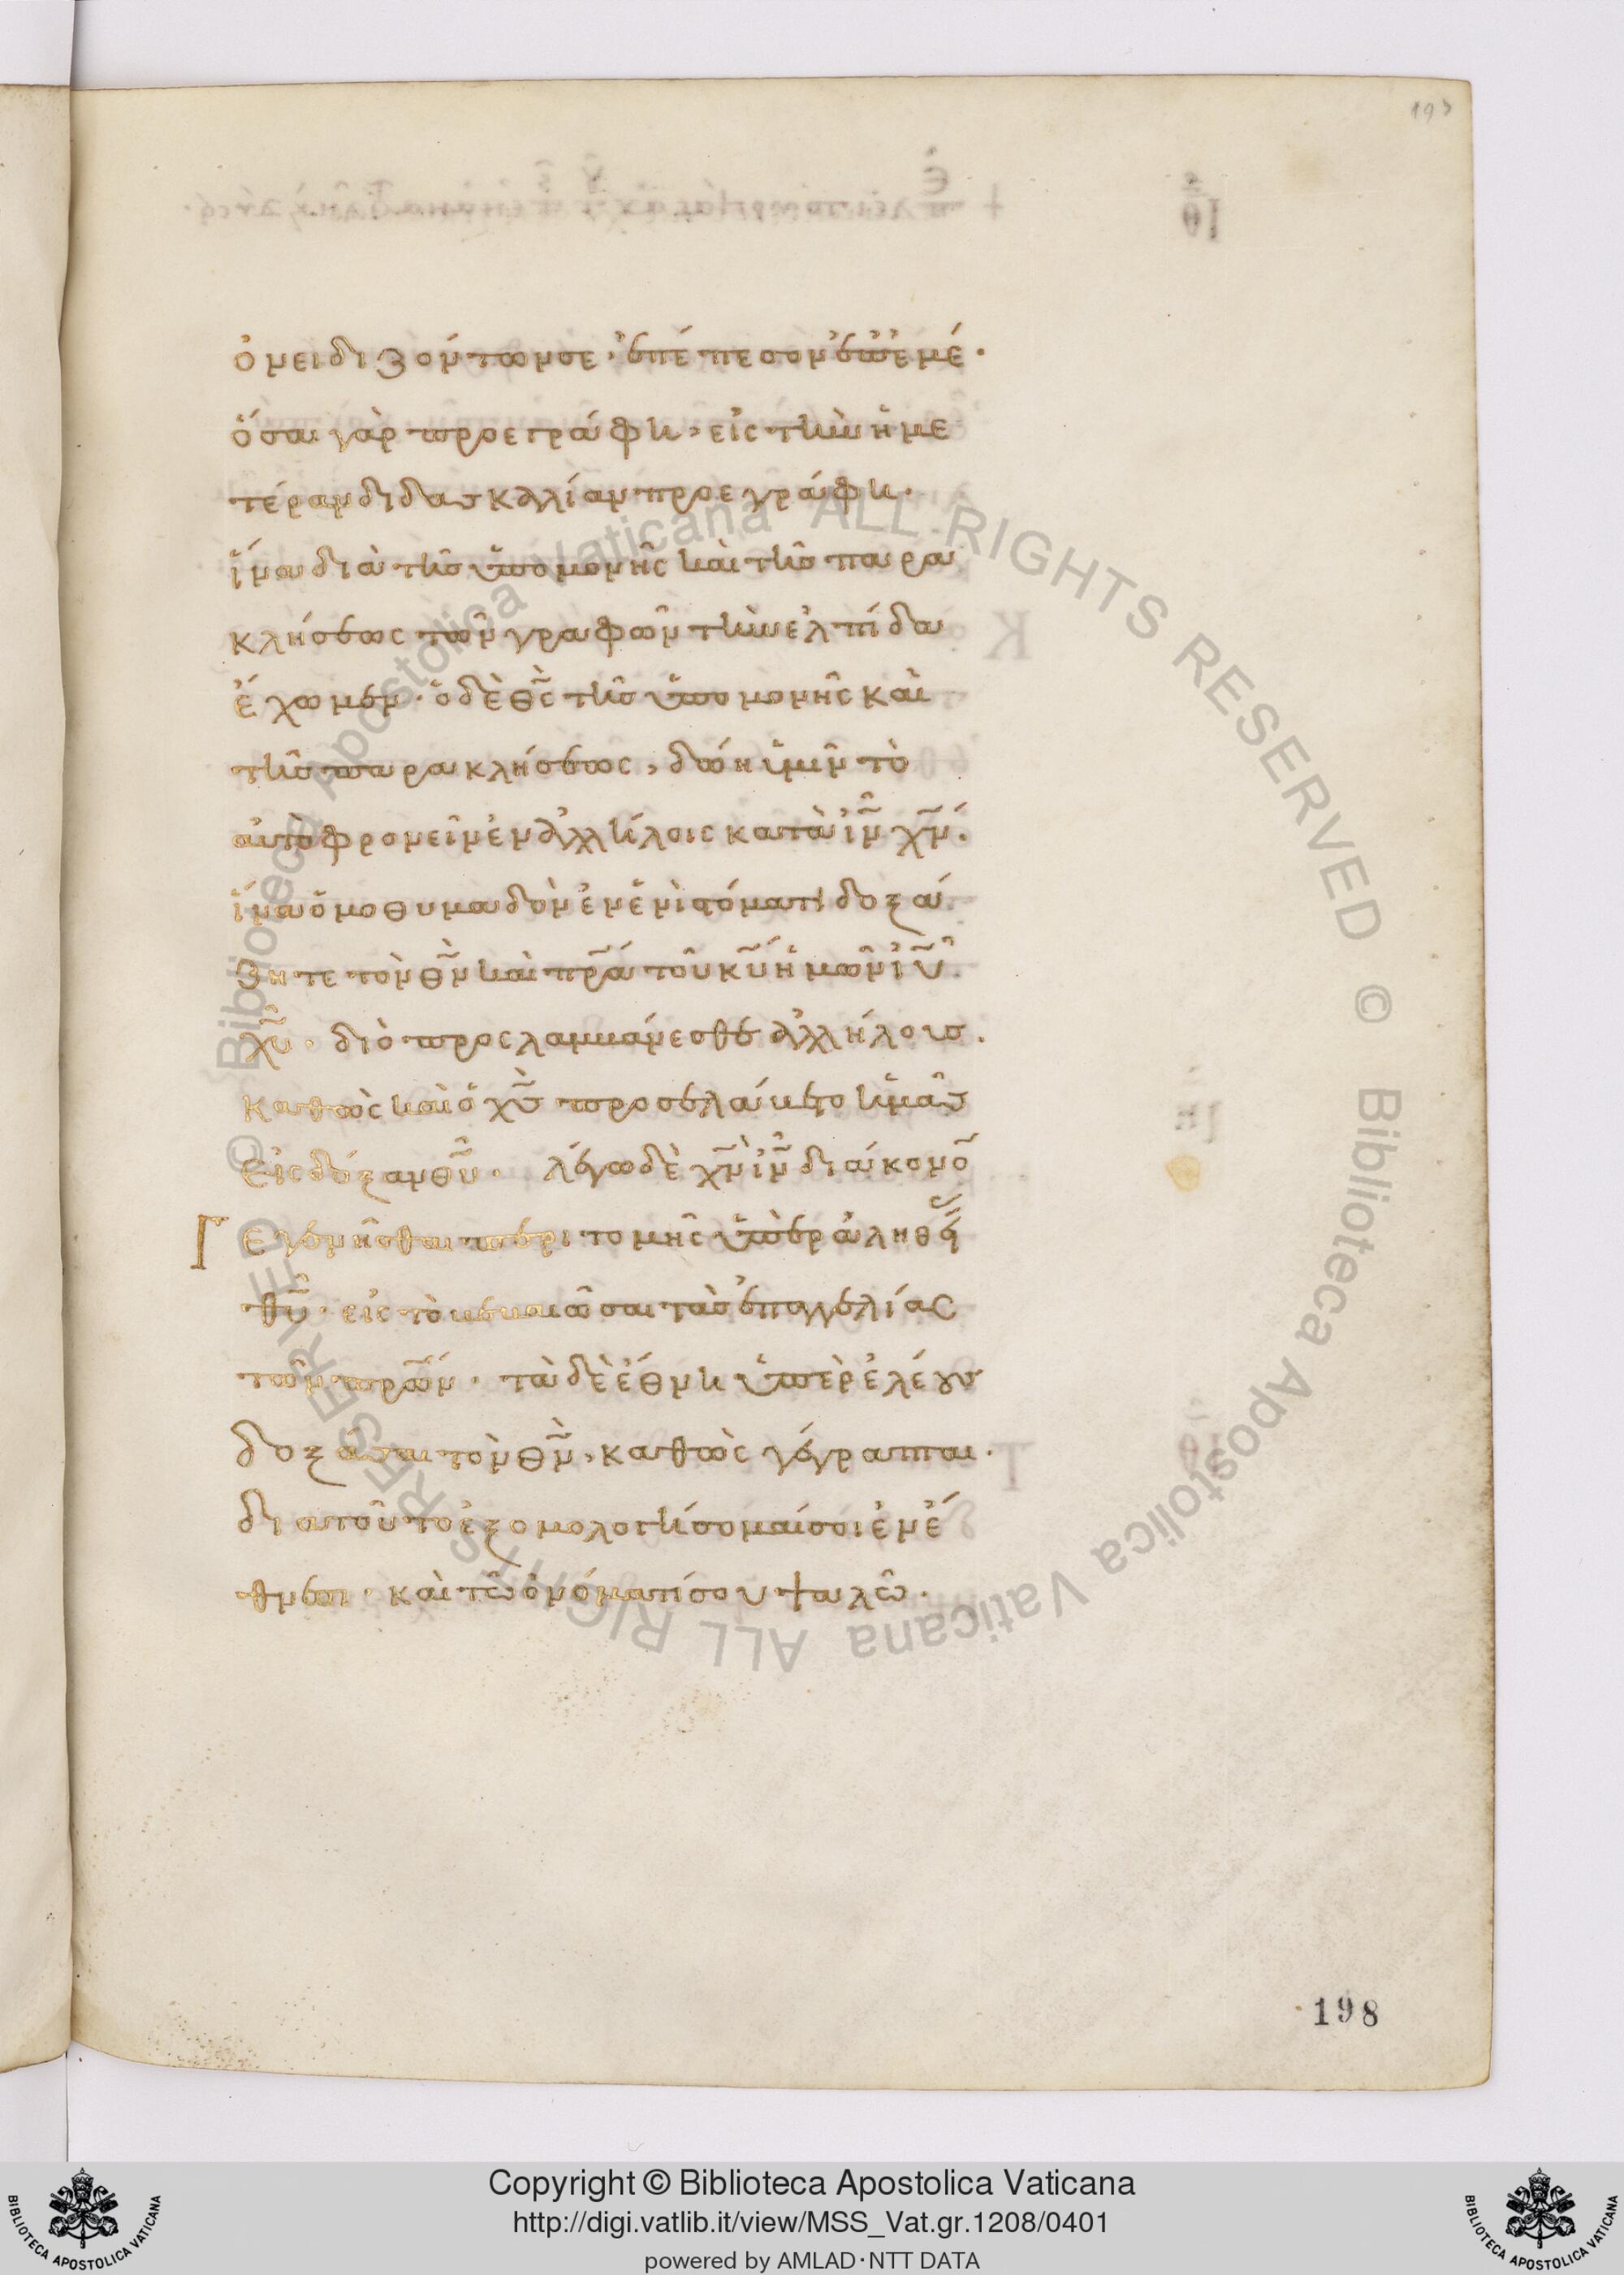 193
ὀνειδιζόντων σε, ἐπέπεσον ἐπ' ἐμέ.
ὅσα γὰρ προεγράφη, εἰς τὴν ἡμε
τέραν διδασκαλίαν προεγράφη.
ἵνα διὰ τῆς ὑπομονῆς καὶ τῆς παρα
κλήσεως τῶν γραφῶν τὴν ἐλπίδα
ἔχωμεν. ὁ δὲ θς τῆς ὑπομονῆς καὶ
τῆς παρακλήσεως, δώη ὑμῖν τὸ
αὐτὸ φρονεῖν ἐν ἀλλήλοις κατὰ ιν χν.
ἵνα ὁμοθυμαδὸν ἐν ἑνὶ στόματι δοξά
ζητε τὸν θν καὶ πρα τοῦ κυ ἡμῶν ιυ
χυ. διὸ προσλαμβάνεσθε ἀλλήλους.
καθὼς καὶ ὁ χς προσελάβετο ἡμᾶς
εἰς δόξαν θυ. λέγω δὲ χν ιν διάκονο
Γεγενῆσθαι περιτομῆς ὑπὲρ ἀληθεί
θυ. εἰς τὸ βεβαιῶσαι τὰς ἐπαγγελίας
τῶν πρων. τὰ δὲ ἔθνη ὑπὲρ ἐλέους
δοξάσαι τὸν θν, καθὼς γέγραπται.
διατοῦτο ἐξομολογήσομαί σοι ἐν ἔ
θνεσι. καὶ τῶ ὀνόματί σου ψαλῶ.
198
© Biblioteca Apostolica Vaticana ALL RIGHTS RESERVED © Biblioteca Apostolica Vaticana ALL RIGHTS RESERVED
Copyright © Biblioteca Apostolica Vaticana
http://digi.vatlib.it/view/MSS_Vat.gr.1208/0401
powered by AMLAD·NTT DATA
BIBLIOTECA APOSTOLICA VATICANA
BIBLIOTECA APOSTOLICA VATICANA